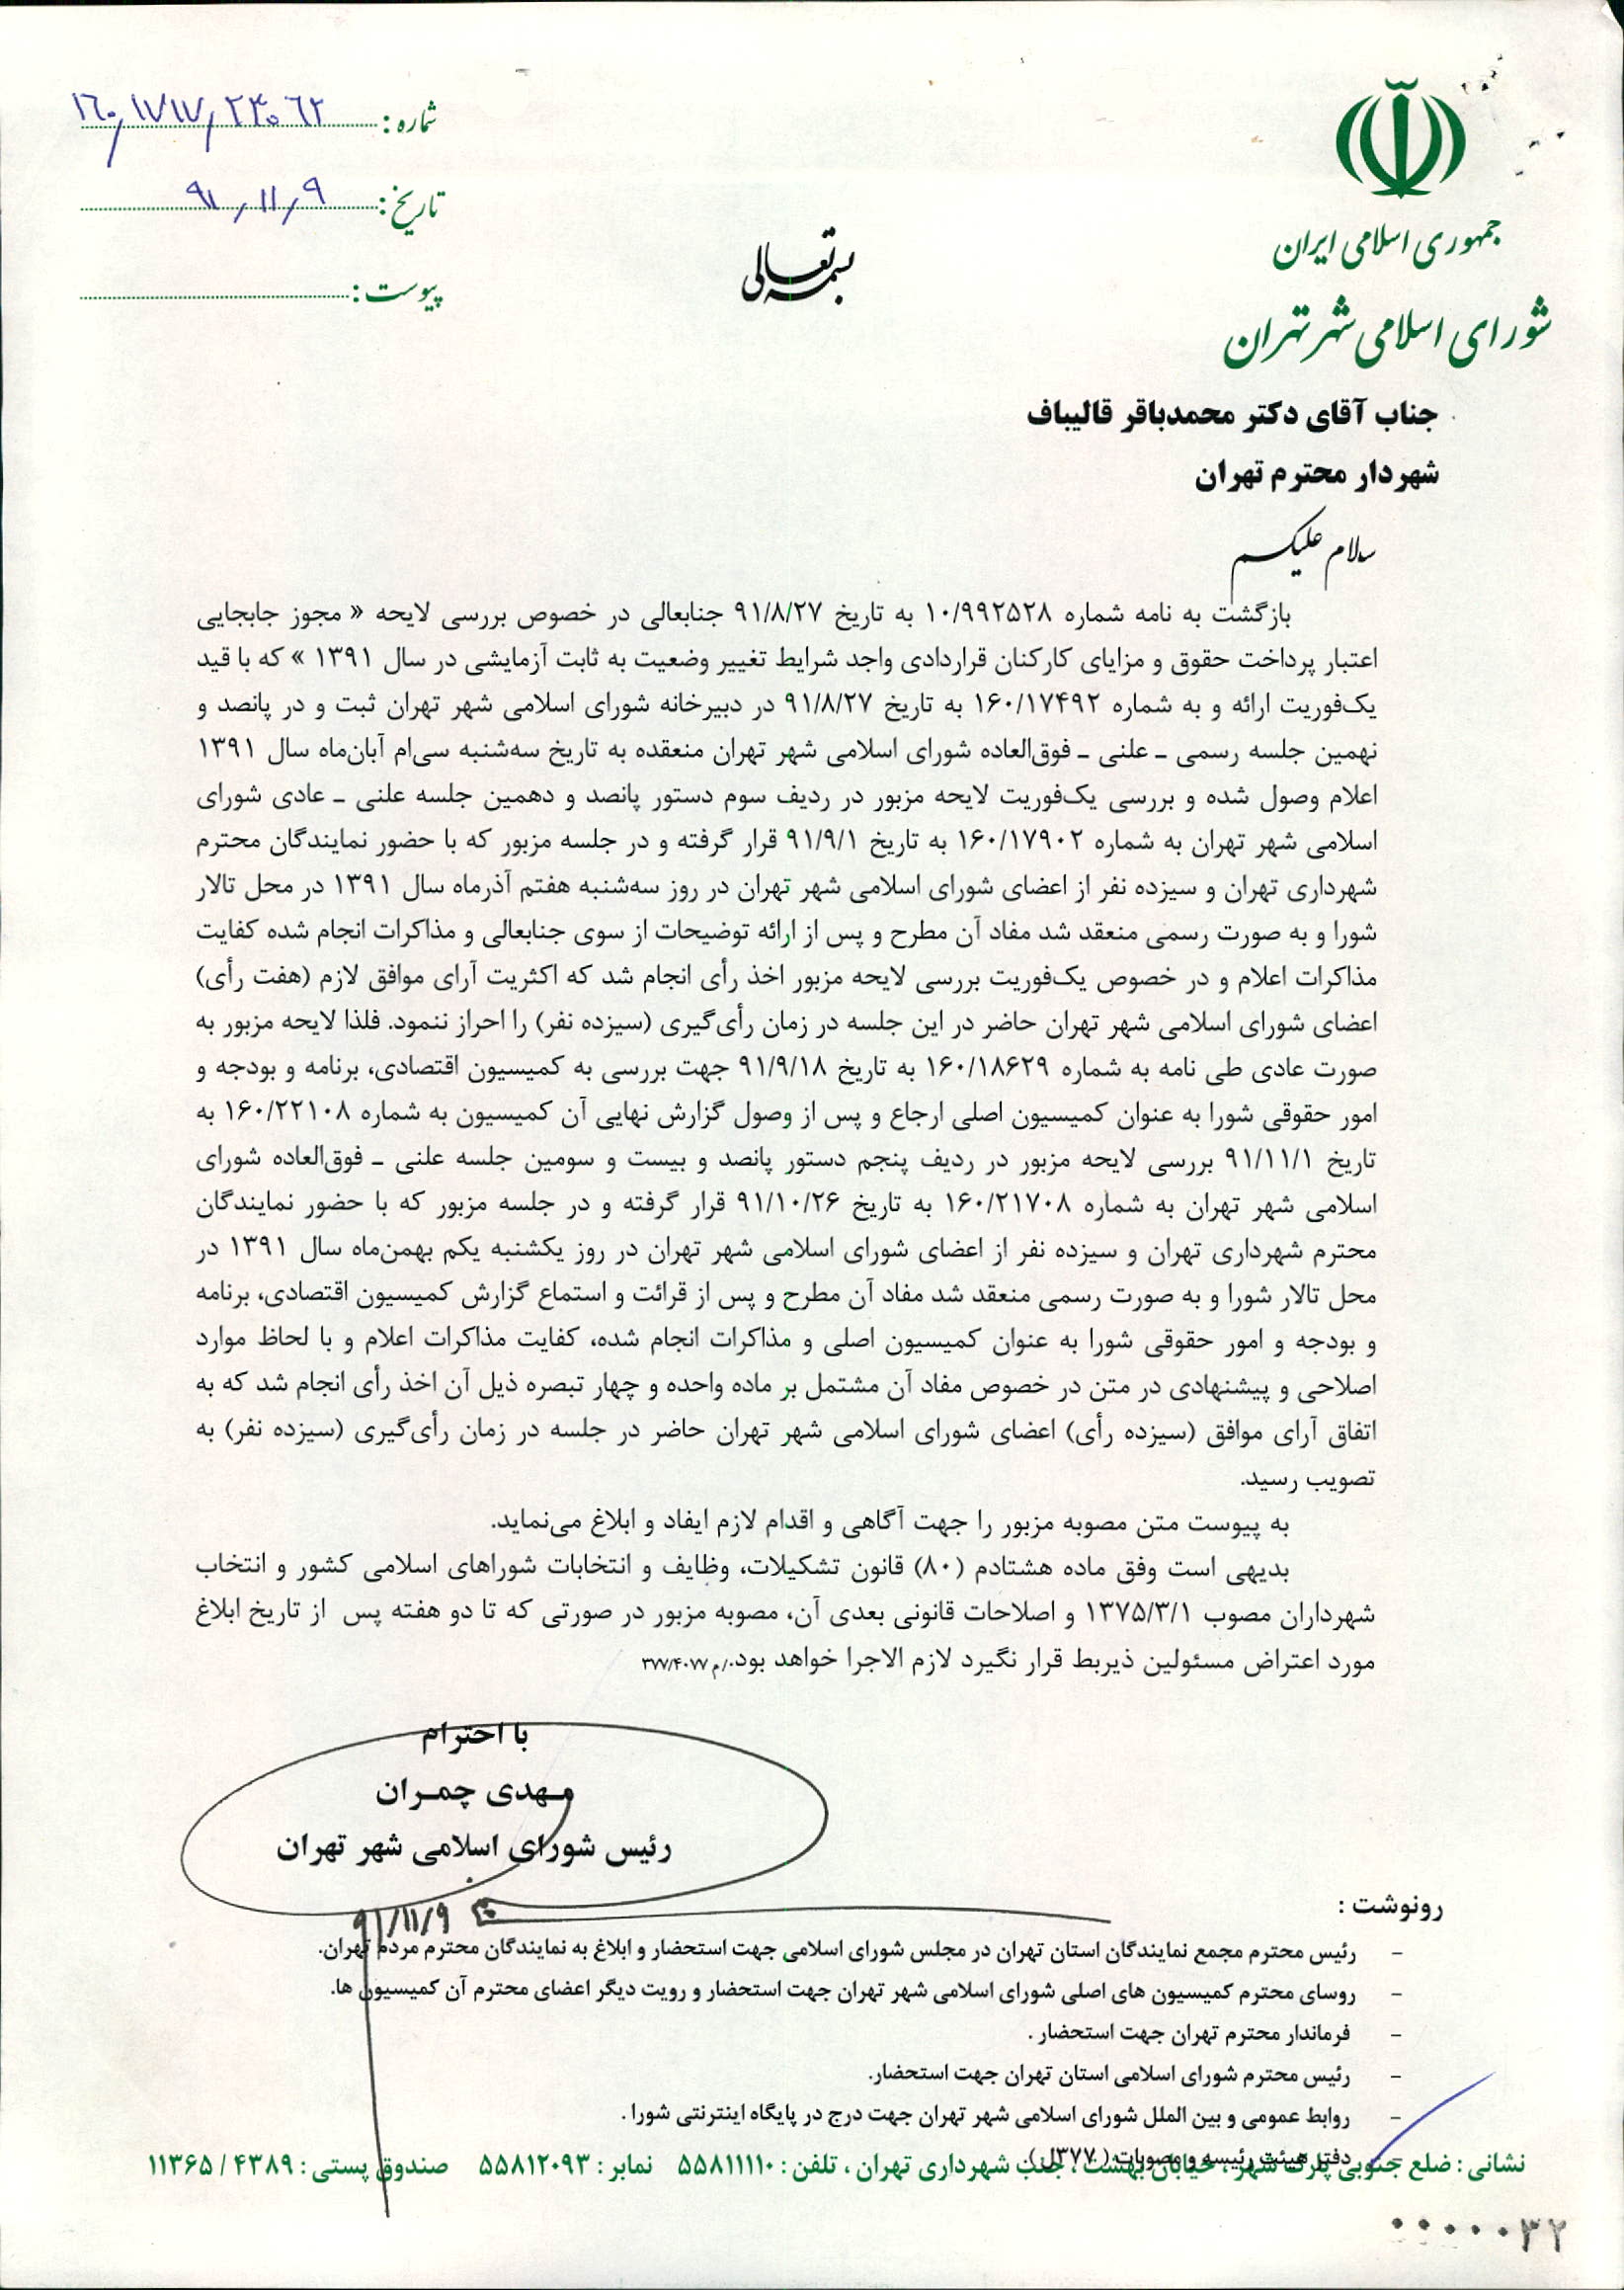 جمهوری اسلامی ایران
شورای اسلامی شهر تهران
شماره: ۱۶۰/۱۷۱۷/۲۳۰۶۲
تاریخ: ۹۱/۱۱/۹
پیوست:
بسمه تعالی
جناب آقای دکتر محمدباقر قالیباف
شهردار محترم تهران
سلام علیکم
بازگشت به نامه شماره ۱۰/۹۹۲۵۲۸ به تاریخ ۹۱/۸/۲۷ جنابعالی در خصوص بررسی لایحه « مجوز جابجایی
اعتبار پرداخت حقوق و مزایای کارکنان قراردادی واجد شرایط تغییر وضعیت به ثابت آزمایشی در سال ۱۳۹۱ » که با قید
یک‌فوریت ارائه و به شماره ۱۶۰/۱۷۴۹۲ به تاریخ ۹۱/۸/۲۷ در دبیرخانه شورای اسلامی شهر تهران ثبت و در پانصد و
نهمین جلسه رسمی ـ علنی ـ فوق‌العاده شورای اسلامی شهر تهران منعقده به تاریخ سه‌شنبه سی‌ام آبان‌ماه سال ۱۳۹۱
اعلام وصول شده و بررسی یک‌فوریت لایحه مزبور در ردیف سوم دستور پانصد و دهمین جلسه علنی ـ عادی شورای
اسلامی شهر تهران به شماره ۱۶۰/۱۷۹۰۲ به تاریخ ۹۱/۹/۱ قرار گرفته و در جلسه مزبور که با حضور نمایندگان محترم
شهرداری تهران و سیزده نفر از اعضای شورای اسلامی شهر تهران در روز سه‌شنبه هفتم آذرماه سال ۱۳۹۱ در محل تالار
شورا و به صورت رسمی منعقد شد مفاد آن مطرح و پس از ارائه توضیحات از سوی جنابعالی و مذاکرات انجام شده کفایت
مذاکرات اعلام و در خصوص یک‌فوریت بررسی لایحه مزبور اخذ رأی انجام شد که اکثریت آرای موافق لازم (هفت رأی)
اعضای شورای اسلامی شهر تهران حاضر در این جلسه در زمان رأی‌گیری (سیزده نفر) را احراز ننمود. فلذا لایحه مزبور به
صورت عادی طی نامه به شماره ۱۶۰/۱۸۶۲۹ به تاریخ ۹۱/۹/۱۸ جهت بررسی به کمیسیون اقتصادی، برنامه و بودجه و
امور حقوقی شورا به عنوان کمیسیون اصلی ارجاع و پس از وصول گزارش نهایی آن کمیسیون به شماره ۱۶۰/۲۲۱۰۸ به
تاریخ ۹۱/۱۱/۱ بررسی لایحه مزبور در ردیف پنجم دستور پانصد و بیست و سومین جلسه علنی ـ فوق‌العاده شورای
اسلامی شهر تهران به شماره ۱۶۰/۲۱۷۰۸ به تاریخ ۹۱/۱۰/۲۶ قرار گرفته و در جلسه مزبور که با حضور نمایندگان
محترم شهرداری تهران و سیزده نفر از اعضای شورای اسلامی شهر تهران در روز یکشنبه یکم بهمن‌ماه سال ۱۳۹۱ در
محل تالار شورا و به صورت رسمی منعقد شد مفاد آن مطرح و پس از قرائت و استماع گزارش کمیسیون اقتصادی، برنامه
و بودجه و امور حقوقی شورا به عنوان کمیسیون اصلی و مذاکرات انجام شده، کفایت مذاکرات اعلام و با لحاظ موارد
اصلاحی و پیشنهادی در متن در خصوص مفاد آن مشتمل بر ماده واحده و چهار تبصره ذیل آن اخذ رأی انجام شد که به
اتفاق آرای موافق (سیزده رأی) اعضای شورای اسلامی شهر تهران حاضر در جلسه در زمان رأی‌گیری (سیزده نفر) به
تصویب رسید.
به پیوست متن مصوبه مزبور را جهت آگاهی و اقدام لازم ایفاد و ابلاغ می‌نماید.
بدیهی است وفق ماده هشتادم (۸۰) قانون تشکیلات، وظایف و انتخابات شوراهای اسلامی کشور و انتخاب
شهرداران مصوب ۱۳۷۵/۳/۱ و اصلاحات قانونی بعدی آن، مصوبه مزبور در صورتی که تا دو هفته پس از تاریخ ابلاغ
مورد اعتراض مسئولین ذیربط قرار نگیرد لازم الاجرا خواهد بود./م ۳۷۷/۴۰۷۷
با احترام
مـهدی چمـران
رئیس شورای اسلامی شهر تهران
۹۱/۱۱/۹
رونوشت :
- رئیس محترم مجمع نمایندگان استان تهران در مجلس شورای اسلامی جهت استحضار و ابلاغ به نمایندگان محترم مردم تهران.
- روسای محترم کمیسیون های اصلی شورای اسلامی شهر تهران جهت استحضار و رویت دیگر اعضای محترم آن کمیسیون ها.
- فرماندار محترم تهران جهت استحضار .
- رئیس محترم شورای اسلامی استان تهران جهت استحضار.
- روابط عمومی و بین الملل شورای اسلامی شهر تهران جهت درج در پایگاه اینترنتی شورا .
- دفتر هیئت رئیسه و مصوبات (۳۷۷ل)
نشانی : ضلع جنوبی پارک شهر، خیابان بهشت، جنب شهرداری تهران ، تلفن : ۵۵۸۱۱۱۱۰ نمابر : ۵۵۸۱۲۰۹۳ صندوق پستی : ۴۳۸۹ / ۱۱۳۶۵
۰۰۰۰۰۳۲